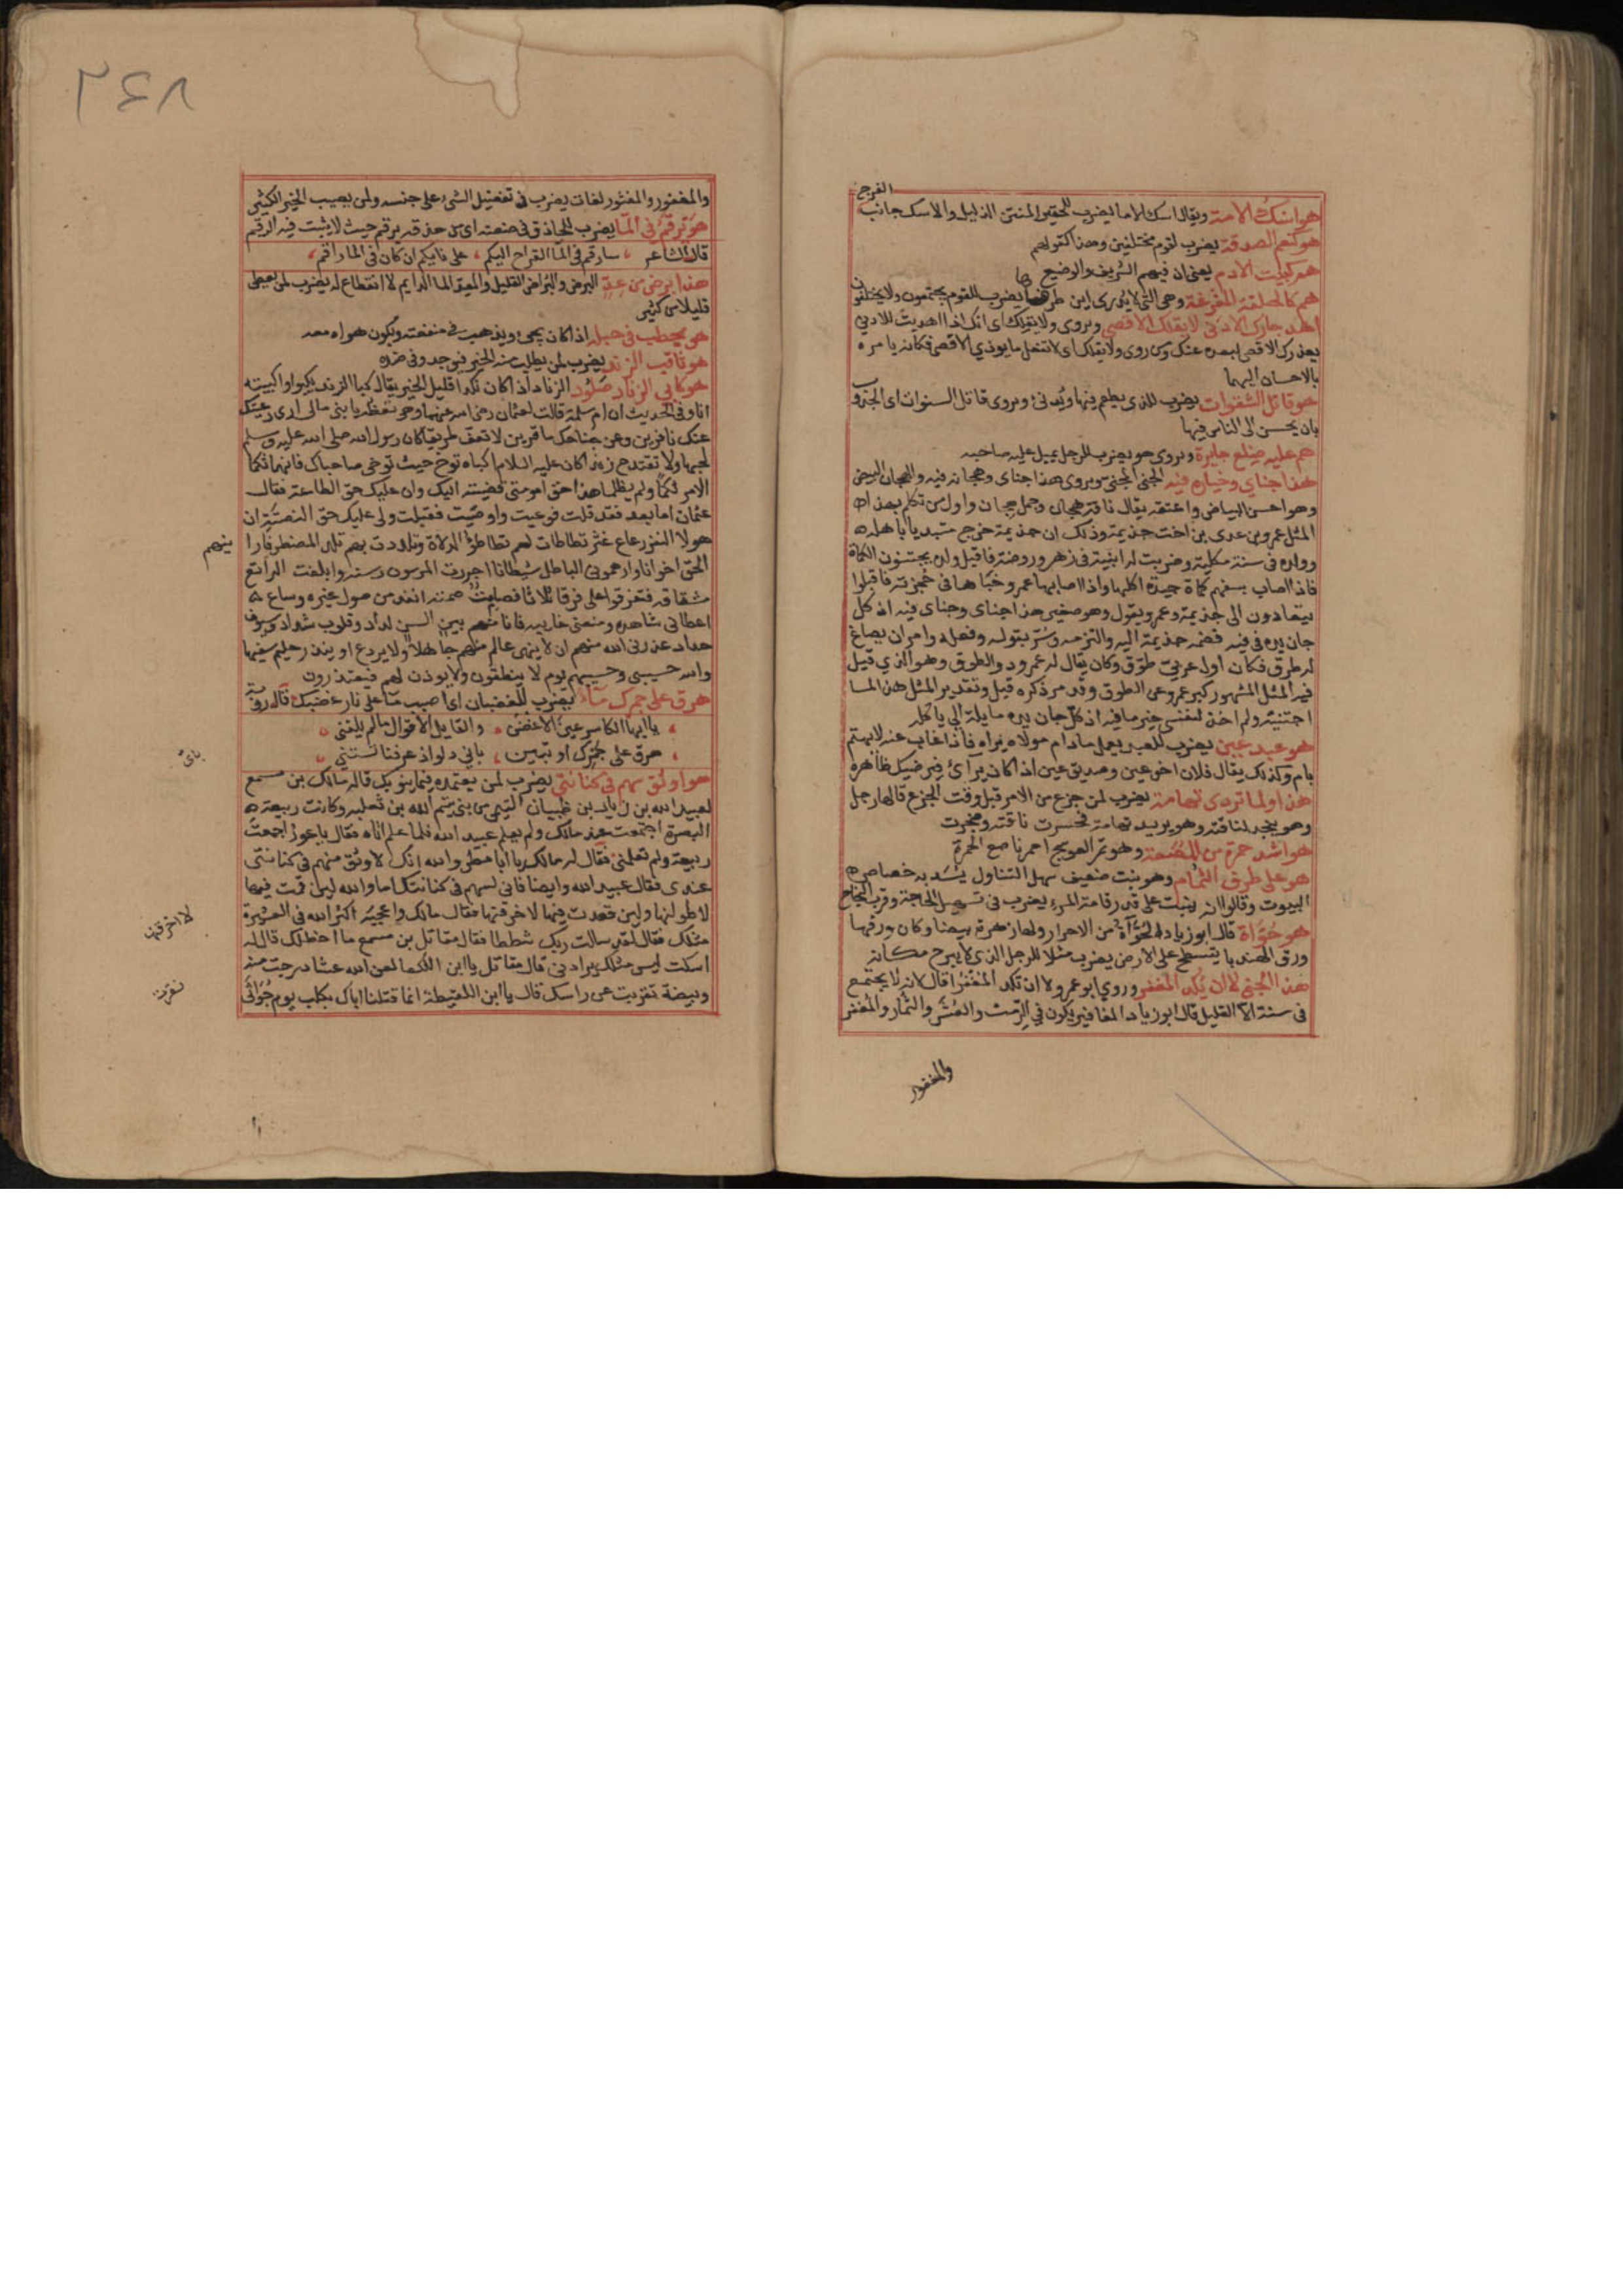 الفرج
هو اسك الامة ويقال اسك الاما يضرب للحقير المنتن الذليل والاسك جانب
هو كنعم الصدقة يضرب لقوم مختلفين وهذا كقولهم
هم كبيت الادم يعني ان فيهم الشريف والوضيع
هم كالحلقة المفرغة وهي التي لا يدرى اين طرفها يضرب للقوم يجتمعون ولا يختلفون
اهد لجارك الادنى لا يقلك الاقصى ويروى ولا يقلك اى انك اذا اهديت للادنى
يعذرك الاقصى لبعده عنك ومن روى ولا يقلك اى لا تفعل ما يوذي الاقصى فكانه يامره
بالاحسان اليهما
هو قاتل الشتوات يضرب للذى يطعم فيها ويدفئ ويروى قاتل السنوات اى الجدوب
بان يحسن الى الناس فيها
هم عليه ضلع جايرة ويروى هو يضرب للرجل يميل عليه صاحبه
هذا جناي وخياره فيه الجنى المجنى ويروى هذا جناى وهجانه فيه والهجان البيض
وهو احسن البياض واعتقه يقال ناقة هجان وجمل هجان واول من تكلم بهذا
المثل عمرو بن عدى بن اخت جذيمة وذلك ان جذيمة خرج متبديا باهله
وولده فى سنة مكلية وضربت له ابنية فى زهر وروضة فاقبل ولده يجتنون الكماة
فاذا اصاب بعضهم كماة جيدة اكلها واذا اصابها عمرو خباها فى حجزته فاقبلوا
يتعادون الى جذيمة وعمرو يقول وهو صغير هذا جناى وجناى فيه اذ كل
جان يده فى فيه فضمه جذيمة اليه والتزمه وسر بقوله وفعله وامر ان يصاغ
له طوق فكان اول عربي طوق وكان يقال له عمرو ذو الطوق وهو الذي قيل
فيه المثل المشهور كبر عمرو عن الطوق وقد مر ذكره قبل وتقدير المثل هذا ما
اجتنيته ولم اخذ لنفسى خير ما فيه اذ كل جان يده مايلة الى ياكله
هو عبد عين يضرب للعبد يعمل مادام مولاه يراه فاذا غاب عنه لا يهتم
بامره وكذلك يقال فلان اخو عين وصديق عين اذا كان يرائ فيرضيك ظاهره
هذا ولما تردى تهامة يضرب لمن جزع من الامر قبل وقت الجزع قالها رجل
وهو بنجد لناقته وهو يريد تهامة فحسرت ناقته وضجرت
هو اشد حمرة من المصعة وهو ثمر العوسج احمر ناصع الحمرة
هو على طرف الثمام وهو نبت ضعيف سهل التناول يسد به خصاص
البيوت وقالوا انه ينبت على قدر قامة المرء يضرب فى تسهيل الحاجة وقرب النجاح
هو حواة قال ابو زياد الحواة من الاحرار ولها زهرة بيضا وكان ورقها
ورق الهندبا يتسطح على الارض يضرب مثلا للرجل الذى لا يبرح مكانه
هذا الجنى لا ان يكد المغفر وروي ابو عمرو لا ان تكد المغفرا قال لانه لا يجتمع
فى سنة الا القليل قال ابو زياد المغافير يكون في الرمث والعشر والثمام والمغفر
والمغفور
٢٤٨
والمغفور والمغثور لغات يضرب فى تفضيل الشئ على جنسه ولمن يصيب الخير الكثير
هو يرقم في الما يضرب للحاذق فى صنعته اى من حذقه يرقم حيث لا يثبت فيه الرقم
قال الشاعر سارقم فى الما القراح اليكم على نايكم ان كان فى الما راقم
هذا برض من عد البرض والبراض القليل والعد الما الدايم لا انقطاع له يضرب لمن يعطى
قليلا من كثير
هو يحطب فى حبله اذا كان يجى ويذهب فى منفعته ويكون هواه معه
هو ثاقب الزند يضرب لمن يطلب منه الخير فيوجد وفى ضده
هو كابي الزناد صلود الزناد اذا كان نكدا قليل الخير يقال كبا الزند يكبو واكبيته
انا وفى الحديث ان ام سلمة قالت لعثمان رضى الله عنهما وهى تعظه يا بنى مالى ارى رعيتك
عنك نافرين وعن جناحك ناقرين لا تعف طريقا كان رسول الله صلى الله عليه وسلم
لحبها ولا تقتدح زندا كان عليه السلام اكباه توخ حيث توخى صاحباك فانهما ثكما
الامر ثكما ولم يظلما هذا حق امومتى قضيته اليك وان عليك حق الطاعة فقال
عثمان اما بعد فقد قلت فوعيت واوصيت فقبلت ولى عليك حق النصتة ان
هولا النفر رعاع غثر تطاطات لهم تطاطؤ الدلاة وتلددت بهم تلدد المضطر فارا
ينهم
الحق اخوانا وارهموني الباطل شيطانا اجررت المرسون رسنه وابلغت الراتع
مسقاته فتفرقوا على فرقا ثلاثا فصامت صمته انفذ من صول غيره وساع
اعطانى شاهده ومنعنى غايبه فانا منهم بين السن لداد وقلوب شداد وسيوف
حداد عذرنى الله منهم ان لا ينهى عالم منهم جاهلا ولا يردع او ينذر حليم سفيها
والله حسيبى وحسيبهم يوم لا ينطقون ولا يوذن لهم فيعتذرون
هرق على جمرك ماء يضرب للغضبان اى اصبب ما على نار غضبك قال روبة
يا ايها الكاسر عين الاغضن والقايل الاقوال ما لم يلقنى
هرق على جمرك او تبين باي دلو اذ عرفنا تستنى
باى
هو اوثق سهم فى كنانتى يضرب لمن يعتمده فيما ينوبك قاله مالك بن مسمع
لعبيد الله بن زياد بن ظبيان التيمى من بنى تيم الله بن ثعلبه وكانت ربيعة
البصرة اجتمعت عند مالك ولم يعلم عبيد الله فلما علم اتاه فقال يا عور اجتمعت
ربيعة ولم تعلمنى فقال له مالك يا ابا مطر والله انك لاوثق سهم فى كنانتى
عندى فقال عبيد الله وايضا فانى لسهم فى كنانتك اما والله لين قمت فيها
لاطولنها ولين قعدت فيها لاخرقنها فقال مالك واعجبه اكثر الله فى العشيرة
لاخرقنها
مثلك فقال لقد سالت ربك شططا فقال مقاتل بن مسمع ما اخطلك قال له
اسكت ليس مثلك يرادنى قال مقاتل يا ابن اللكعا لعن الله عشا درجت منه
وبيضة تقوبت عن راسك قال يا ابن اللقيطة انما قتلنا اباك بكلب يوم جواثى